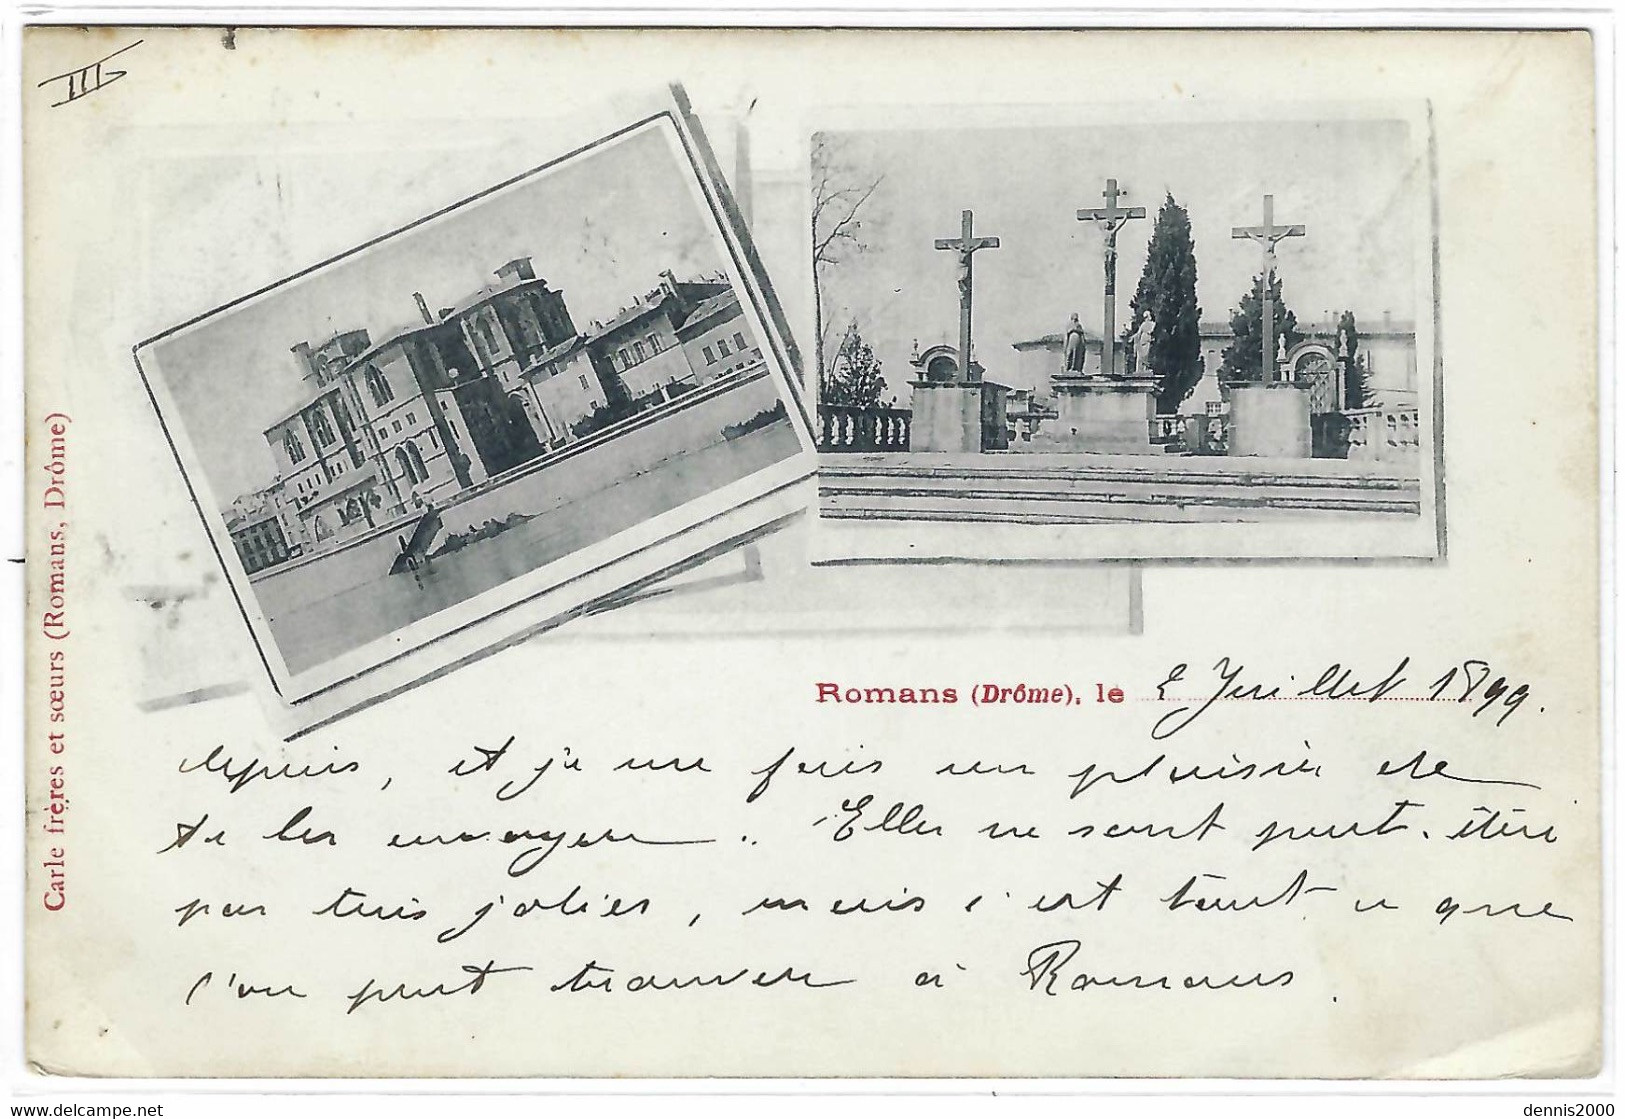 III
Carle frères et sœurs (Romans, Drôme)
Romans (Drôme), le 2 Juillet 1899.
depuis, et je me fais un plaisir de
te les envoyer. Elles ne sont peut-être
pas très jolies, mais c'est tout ce que
l'on peut trouver à Romans.
delcampe.net
dennis2000